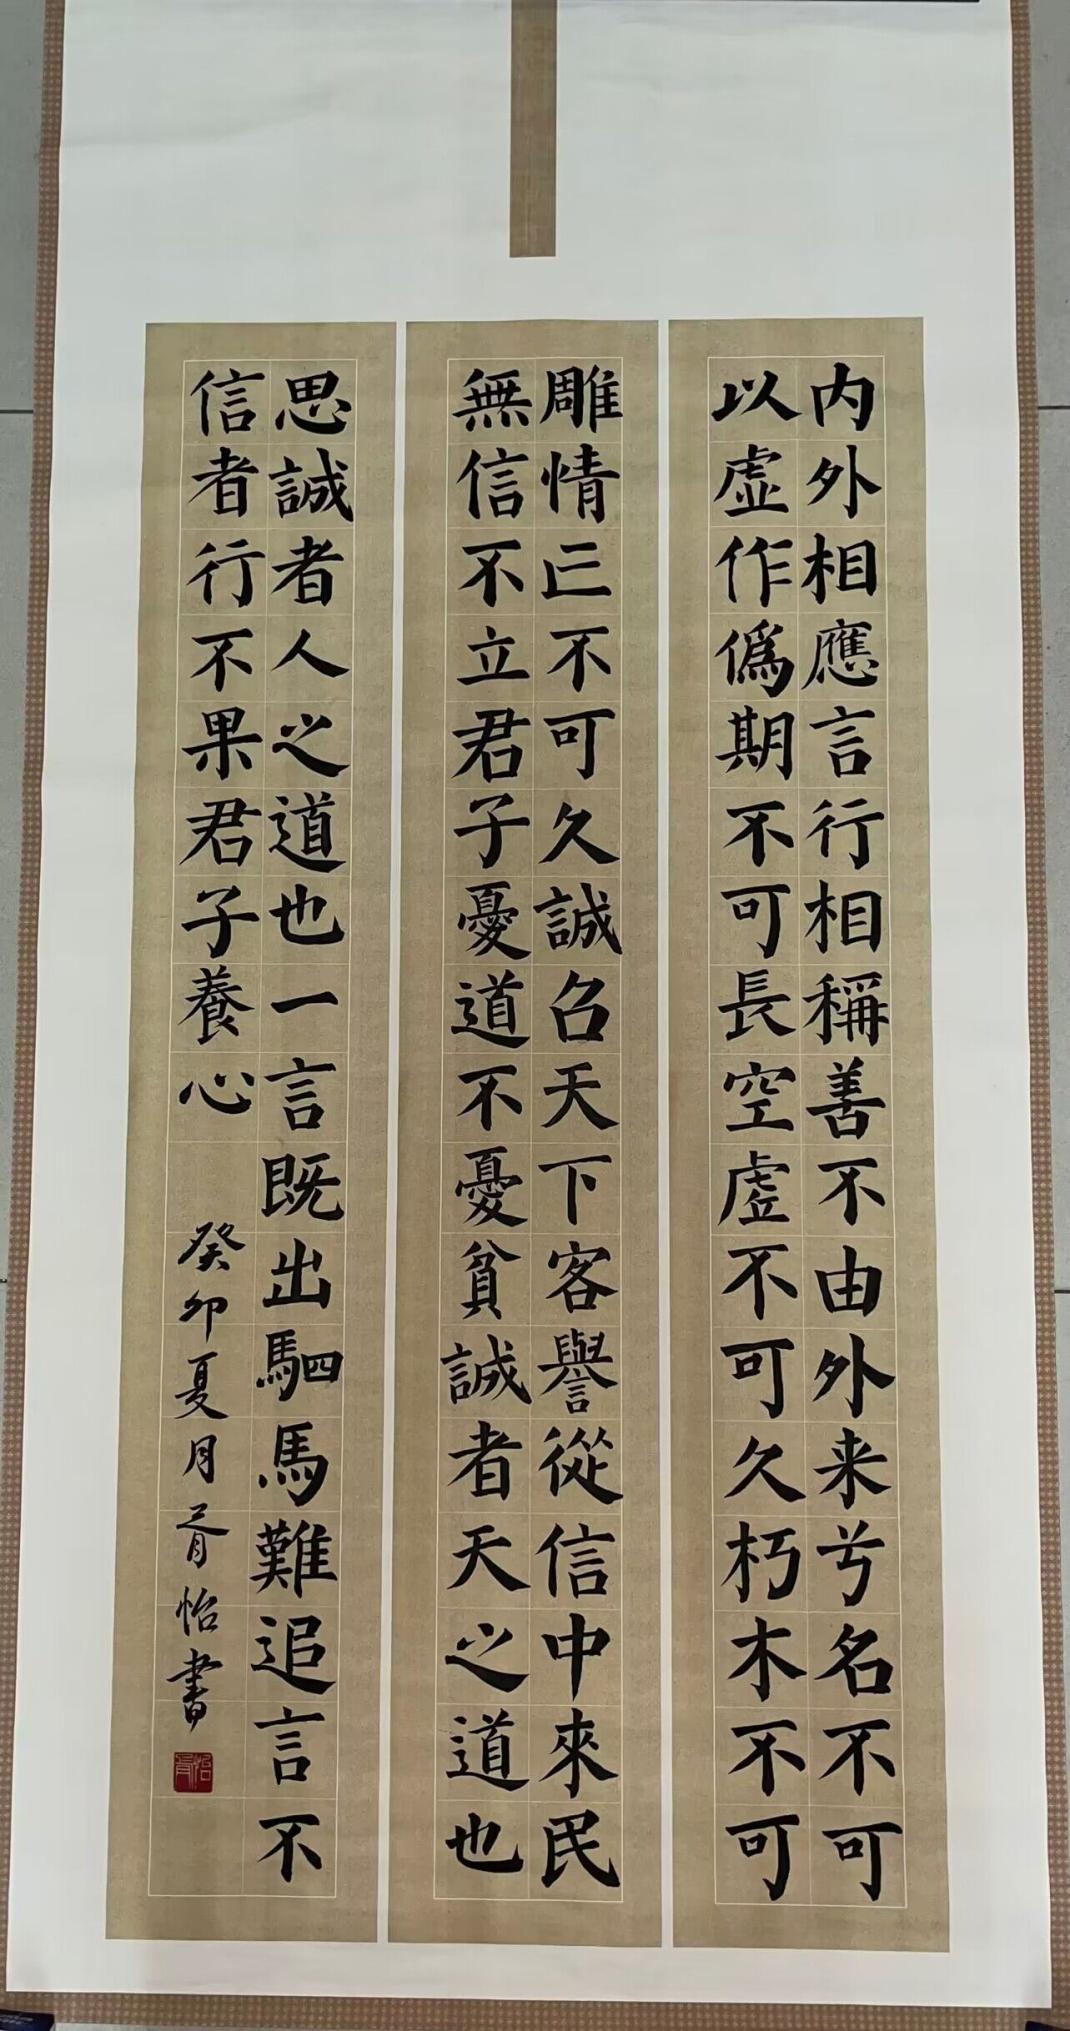 内外相應言行相稱善不由外来兮名不可
以虛作僞期不可長空虛不可久朽木不可
雕情亡不可久誠召天下客譽從信中來民
無信不立君子憂道不憂貧誠者天之道也
思誠者人之道也一言既出駟馬難追言不
信者行不果君子養心
癸卯夏月胥怡書